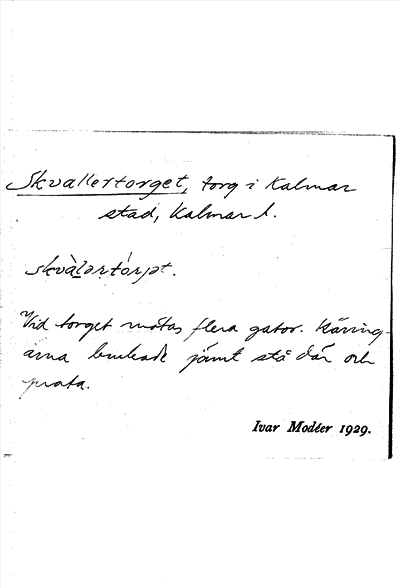 Skvallertorget, torg i Kalmar
stad, Kalmar l.
skvàlərtórjət.
Vid torget mötas flera gator. Käring-
arna brukade jämt stå där och
prata.
Ivar Modéer 1929.